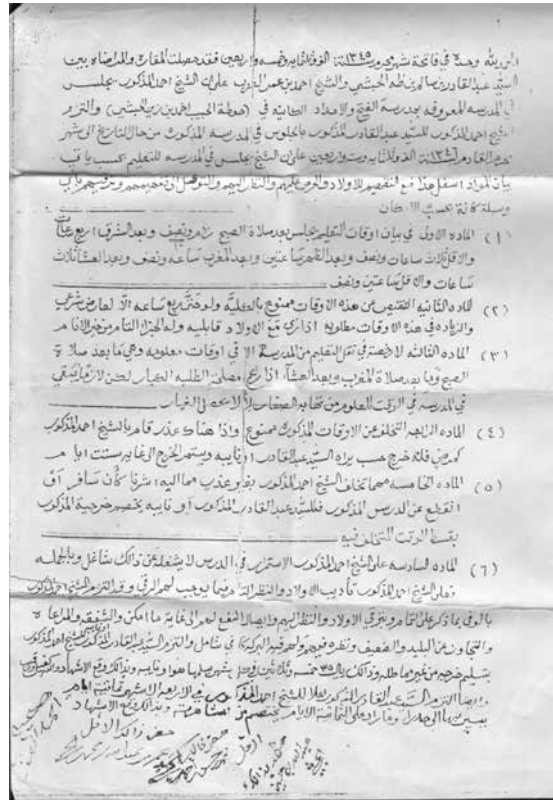 الحمد لله وحده في فاتحة شهر محرم سنة ١٣٤٥ الف وثلثمايه وخمسه واربعين فقد حصلت المقاره والمراضاه بين
السيد عبدالقادر بن سالم بن طه الحبشي والشيخ احمد بن عمر على ان الشيخ احمد المذكور يجلس
في المدرسه المعروفه بمدرسة الفتح والامداد الكائنه في (حوطة الحبيب احمد بن زين الحبشي) والتزم
الشيخ احمد المذكور للسيد عبدالقادر المذكور بالجلوس في المدرسه المذكوره من حال التاريخ الى شهر
سنة ١٣٤٦ الف وثلثمايه وست واربعين على ان الشيخ يجلس في المدرسه للتعليم بحسب ياتي
بيان المواد اسفل هذا مع للاولاد والحرص عليهم والنظر اليهم والتوصل الى تفهيمهم بأي
وسيلة كانة بحسب الامكان
(١) الماده الاولى في بيان اوقات التعليم يجلس بعد صلاة الصبح ونصف وبعد الشرق اربع ساعات
والاقل ثلاث ساعات ونصف وبعد الظهر ساعتين وبعد المغرب ساعه ونصف وبعد العشاء ثلاث
ساعات والاقل ساعتين ونصف
(٢) الماده الثانيه التنقيص من هذه الاوقات ممنوع بالكليّة ولو حتى ربع ساعه الّا لعارض شرعي
والزياده في هذه الاوقات مطلوبه اذا رأى مع الاولاد قابليه وله الجزاء التام من خير الانام
(٣) الماده الثالثه لا رخصة في نقل التعليم من المدرسة الا في اوقات معلومه وهي ما بعد صلاة
الصبح وما بعد صلاة المغرب وبعد العشاء اذا رأى مصلحة الطلبه الكبار لكن لازما يبقي
في المدرسه في الوقت المعلوم من للصغار لألا يحصل الغيار
(٤) الماده الرابعه التخلف عن الاوقات المذكوره ممنوع واذا هناك عذر قام بالشيخ احمد المذكور
كمرض فله خرج حسب يراه السيد عبدالقادر او نايبه ويستمر الخرج الى غاية ستت ايام
(٥) الماده الخامسه مهما تخلف الشيخ احمد المذكور بغير عذر كأن سافر أو
انقطع عن الدرس المذكور فللسيد عبدالقادر المذكور او نايبه يخصم خرجية المذكور
بقسط الوقت التخلف فيه
(٦) الماده السادسه على الشيخ احمد المذكور الاستمرار في الدرس لا يشغله عن ذالك شاغل وبالجمله
فعلى الشيخ احمد المذكور تأديب الاولاد والنظر التام فيما يوجب لهم الرقي وقد التزم الشيخ احمد المذكور
بالوفى بما ذكر على التمام وبترقي الاولاد والنظر اليهم وايصال النفع لهم الى غاية ما امكن والشفقه والمراعاه
والتجاوز عن البليد والضعيف ونظره فيهم والتزم السيد عبدالقادر المذكور
بتسليم خرجيه من غير مماطله وذالك ريال ٣٥ خمسه وثلاثين في كل شهر يسلمها هو او نايبه وبذالك وقع الاشهاد
وايضا التزم السيد عبدالقادر المذكور للشيخ احمد المذكور في الاربعة الاشهر ثمانية ايام
وما زاد على الثمانية الايام يخصم من وبذالك وقع الاشهاد